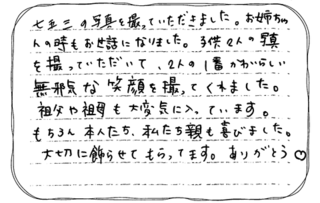 七五三の写真を撮っていただきました。お姉ちゃ
んの時もお世話になりました。子供2人の写真
を撮っていただいて、2人の1番かわいらしい
無邪気な笑顔を撮ってくれました。
祖父や祖母も大変気に入っています。
もちろん本人たち、私たち親も喜びました。
大切に飾らせてもらってます。ありがとう♡